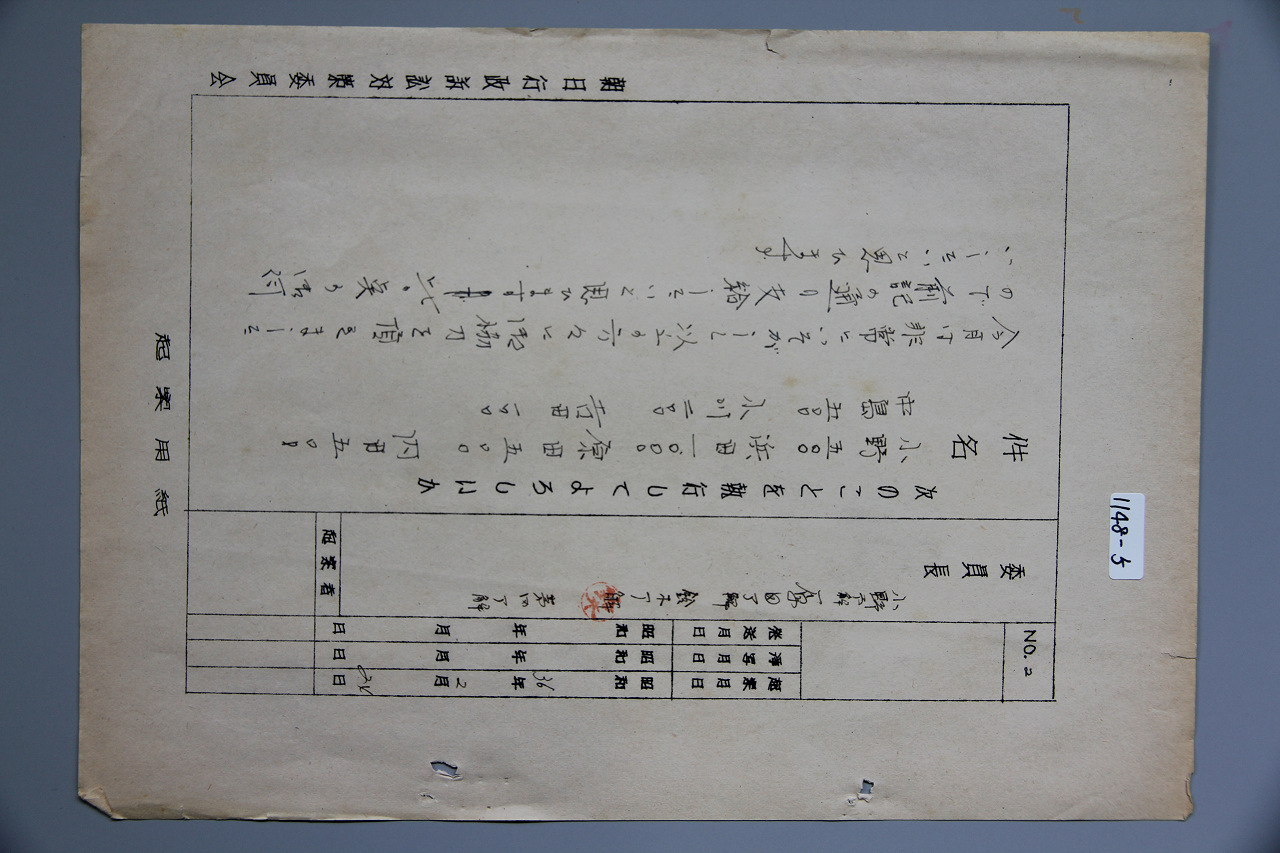 NO. 2
起案月日 昭和36年2月 日
浄写月日 昭和 年 月 日
発送月日 昭和 年 月 日
小野了解 原田了解 鈴木了解 了解
委員長
起案者
次のことを執行してよろしいか
件名 小野 五〇〇 浜田 一〇〇〇 原田 五〇〇 内田 五〇〇
中島 五〇〇 小川 二〇〇 吉田 一〇〇
今月は非常にいそがしく以上の方々に御協力を頂きました
ので前記の通り支給したいと思います 御伺
いしたいと思います
朝日行政訴訟対策委員会
起案用紙
1148-5